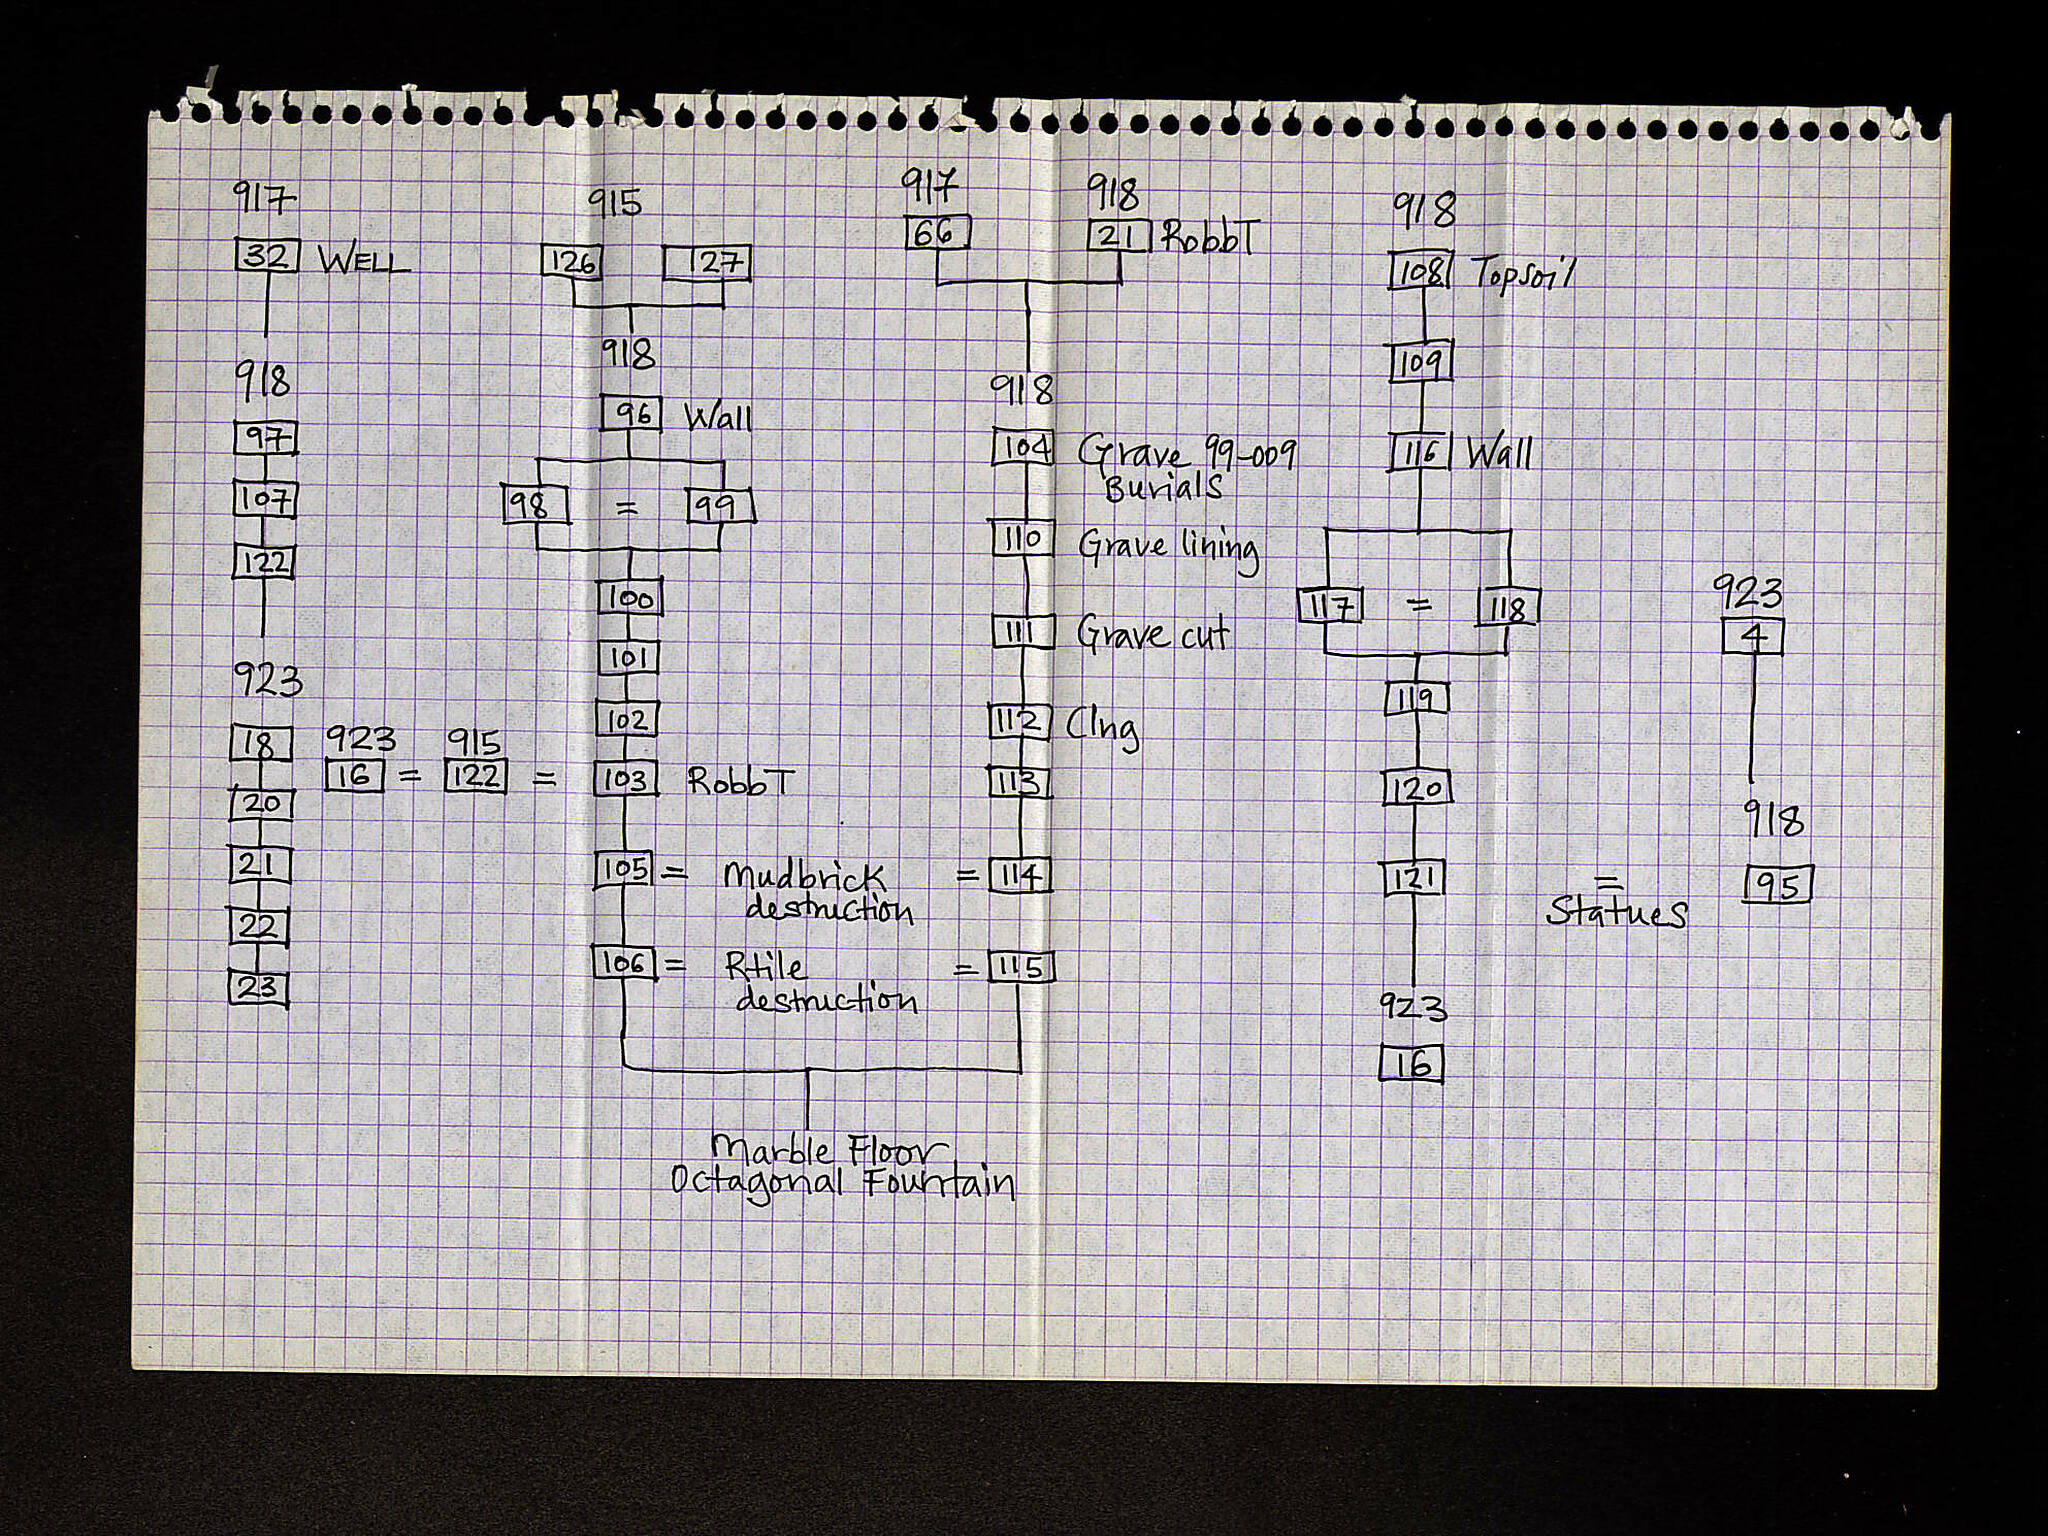 917
32 WELL
918
97
107
122
923
18
20
21
22
23
923 915
16 = 122 =
915
126 127
918
96 Wall
98 = 99
100
101
102
103 RobbT
105 = Mudbrick
destruction
= 114
106 = Rtile
destruction
= 115
Marble Floor
Octagonal Fountain
917 918
66 21 RobbT
918
104 Grave 99-009
Burials
110 Grave lining
111 Grave cut
112 Clng
113
918
108 Topsoil
109
116 Wall
117 = 118
119
120
121
=
Statues
923
16
923
4
918
95